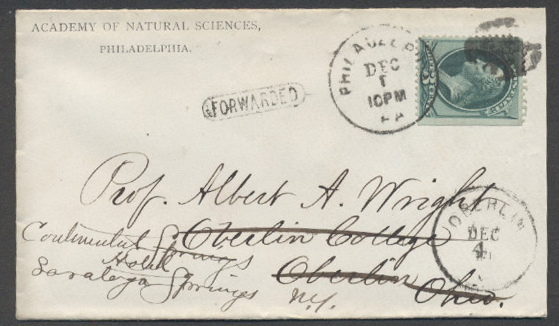 ACADEMY OF NATURAL SCIENCES,
PHILADELPHIA.
PHILADELPHIA
DEC
1
10PM
PA
FORWARDED
Prof. Albert A. Wright
Oberlin College
Oberlin
Ohio.
Continental Springs
Hotel
Saratoga Springs
N.Y.
OBERLIN
DEC
4